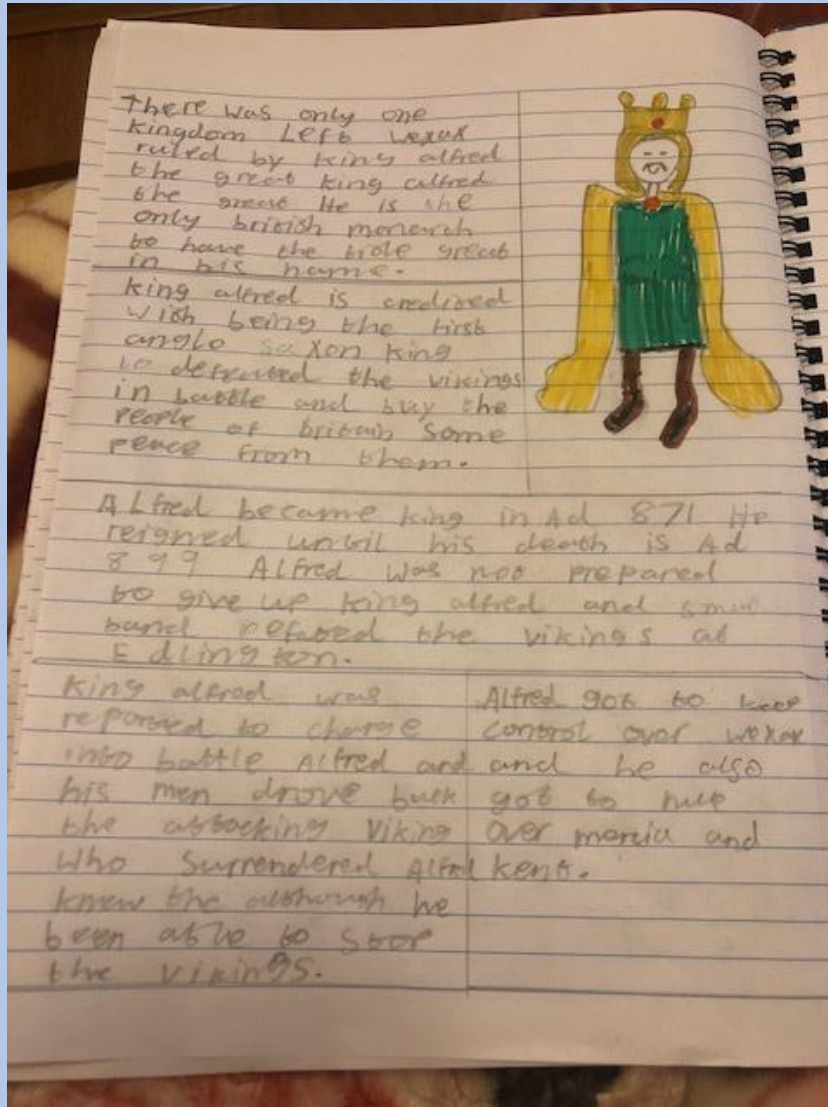 There was only one
kingdom Left wexax
ruled by king alfred
the great king alfred
the great He is the
only british monarch
to have the title great
in his name.
king alfred is credized
with being the first
anglo saxon king
to defeated the vikings
in battle and buy the
people of britain some
peace from them.
ALfred became king in Ad 871 He
reigned until his death is Ad
899 ALfred was not prepared
to give up king alfred and
band defated the vikings at
Edlington.
king alfred was
reported to charge
into battle Alfred and
his men drove back
the attacking Viking
who surrendered Alfred
knew the although he
been able to stop
the vikings.
Alfred got to keep
control over wexax
and he also
got to rule
over mercia and
kent.